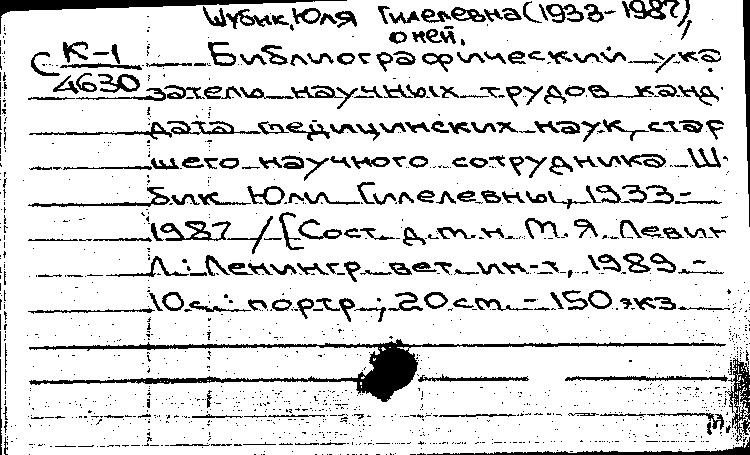 Шубик, Юля Гилелевна (1933-1987),
о ней.
С К-1
4630
Библиографический ука
затель научных трудов канд
дата медицинских наук, стар
шего научного сотрудника Ш
бик Юли Гилелевны, 1933-
1987 / [Сост. д.т.н. М.Я. Левин
Л.: Ленингр. вет. ин-т, 1989.-
10с.: портр.; 20см. - 150 экз.